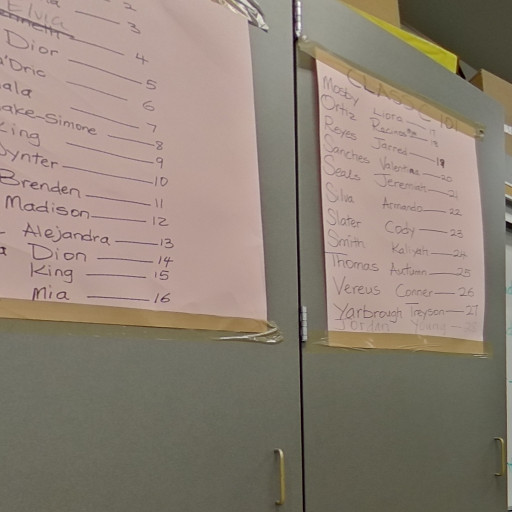 2
Elvia
3
Dior 4
5
6
7
ake-Simone 8
9
ynter 10
Brenden 11
Madison 12
Alejandra 13
Dion 14
King 15
Mia 16
CLASS C 101
Mosby Liora 17
Ortiz 18
Reyes Jarred 19
Sanches Valentina 20
Seals Jeremiah 21
Silva Armando 22
Slater Cody 23
Smith Kaliyah 24
Thomas Autumn 25
Vereus Conner 26
Yarbrough Treyson 27
Jordan Young